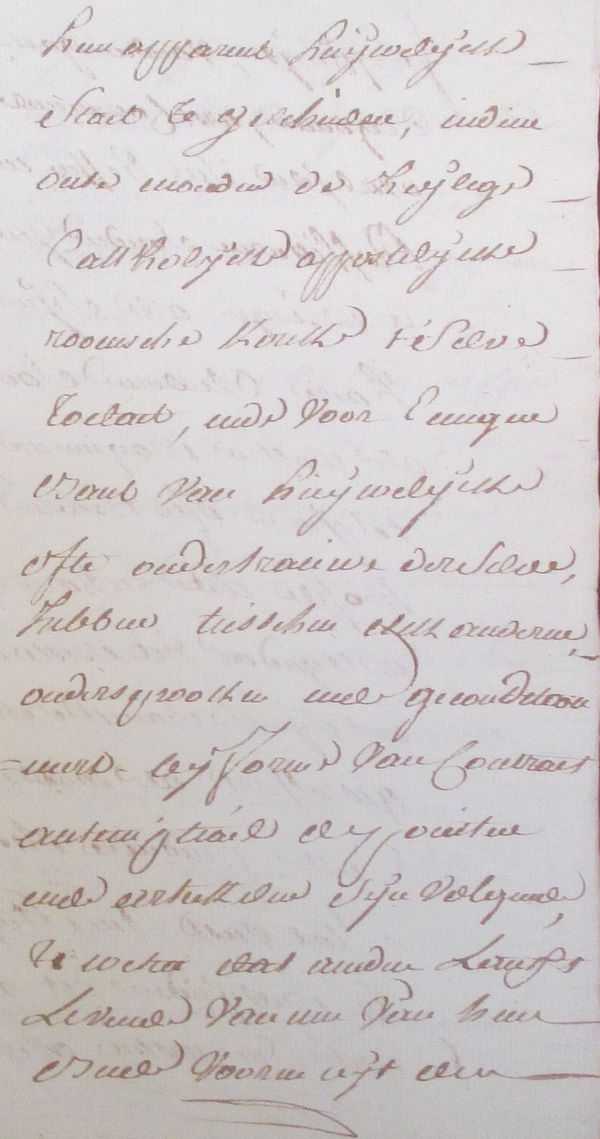 hun apparent huijwelijck
staet te geschieden, indien
onse moeder de heylige
Catholijcke apostolijcke
roomsche kercke t'selve
toelaet, ende voor eenigen
bant van huijwelijcke
ofte ondertrauwe derselve,
hebben tusschen elckanderen,
ondersproocken ende gecondition
neert by forme van Contract
antenuptiael de poincten
ende articklen sijn volgende,
te weten dat aen den Lancxt
Levende van een van hun
beede voorm: uijt den